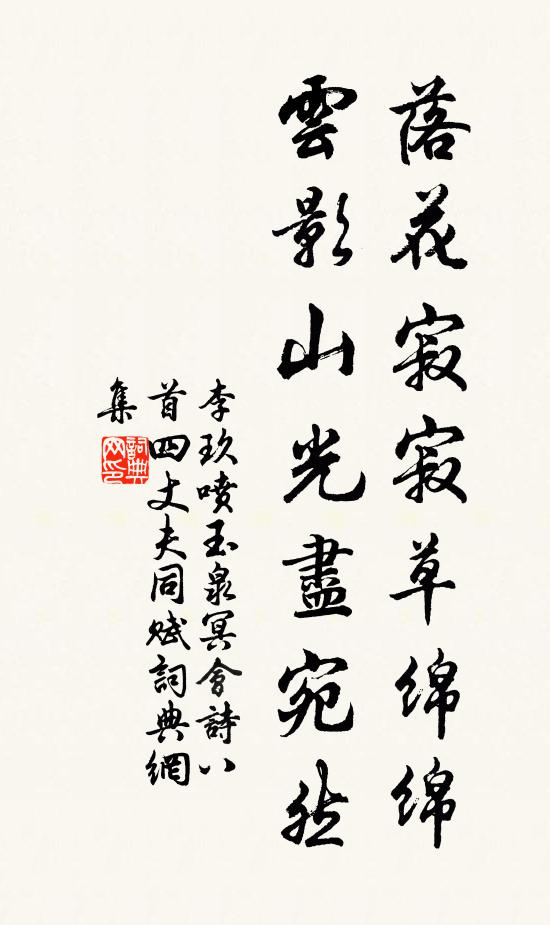 落花寂寂草绵绵
雲影山光盡宛然
李玖噴玉泉冥會詩八
首四丈夫同賦詞典網
集
詞典